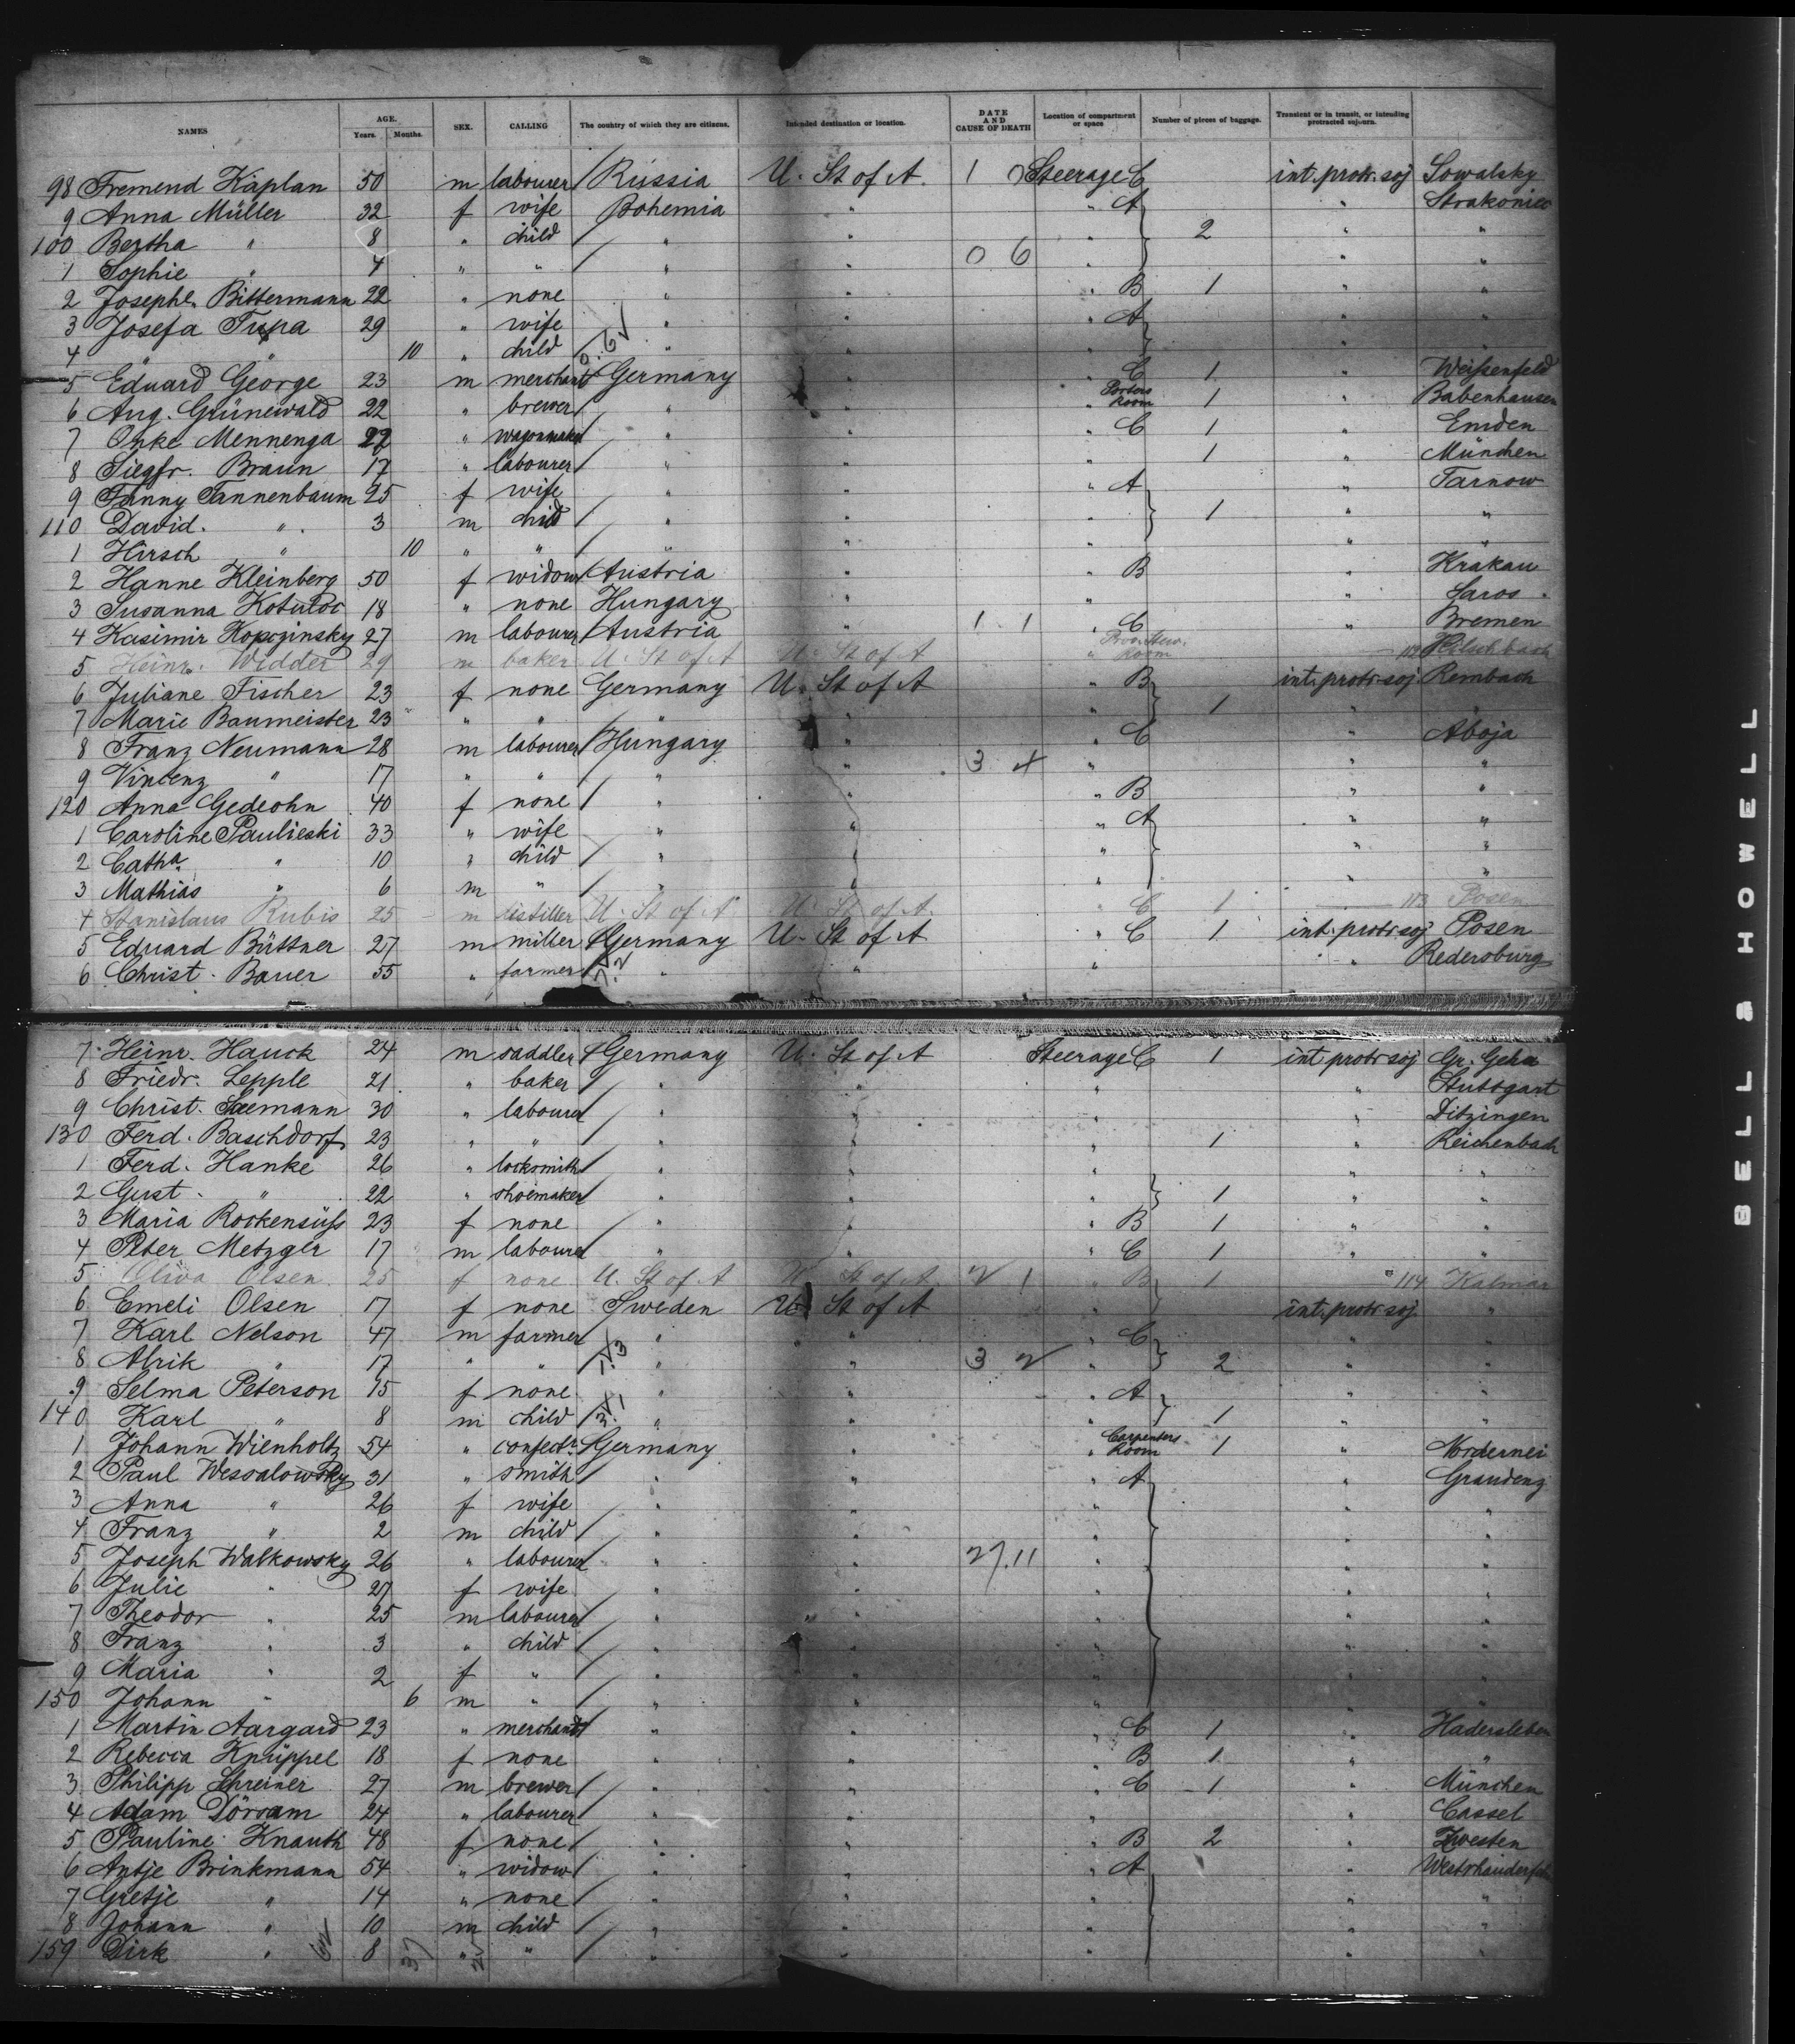 NAMES AGE. Years. Months. SEX. CALLING The country of which they are citizens. Intended destination or location. DATE AND CAUSE OF DEATH Location of compartment or space Number of pieces of baggage. Transient or in transit, or intending protracted sojourn.
98 Fremend Kaplan 50 m labourer Russia U. St of A. 1 0 Steerage C int. protr. soj Sowalsky
9 Anna Müller 32 f wife Bohemia " " A " Strakonic
100 Bertha " 8 " child " " " 2 " "
1 Sophie " 4 " " " " 0 6 " " "
2 Josephe. Bittermann 22 " none " " " B 1 " "
3 Josefa Tupa 29 " wife " " " A " "
4 " " 10 " child " " " " "
5 Eduard George 23 m merchant Germany " " C 1 " Weissenfeld
6 Aug. Grünewald 22 " brewer " " " Porters Room 1 " Babenhausen
7 Onke Mennenga 22 " wagonmaker " " " C 1 " Emden
8 Siegfr. Braun 17 " labourer " " " 1 " München
9 Fanny Tannenbaum 25 f wife " " " A " Tarnow
110 David " 3 m child " " " 1 " "
1 Hirsch " 10 " " " " " " "
2 Hanne Kleinberg 50 f widow Austria " " B " Krakau
3 Susanna Kotuloc 18 " none Hungary " " " Saros
4 Kasimir Kopczinsky 27 m labourer Austria " 1 1 " C " Bremen
5 Heinr. Widder 29 m baker U. St of A U. St of A " Room Hilschbach
6 Juliane Fischer 23 f none Germany U. St of A " B int. protr. soj. Rembach
7 Marie Baumeister 23 " " " " " 1 "
8 Franz Neumann 28 m labourer Hungary " " C " Aboja
9 Vincenz " 17 " " " " 3 4 " " "
120 Anna Gedeohn 40 f none " " " B " "
1 Caroline Paulieski 33 " wife " " " A " "
2 Catha. " 10 " child " " " " "
3 Mathias " 6 m " " " " " "
4 Stanislaus Rubis 25 m distiller U. St of A U. St of A. " C 1 113 Posen
5 Eduard Büttner 27 m miller Germany U. St of A " C 1 int. protr. soj Posen
6 Christ. Bauer 55 " farmer " " " " Redersburg
7 Heinr. Hauck 24 m saddler Germany U. St of A Steerage C 1 int protr soj Gr. Gehra
8 Friedr. Lepple 21 " baker " " " " Stuttgart
9 Christ. Seemann 30 " labourer " " " " Ditzingen
130 Ferd. Baschdorf 23 " " " " " 1 " Reichenbach
1 Ferd. Hanke 26 " locksmith " " " " "
2 Gust. " 22 " shoemaker " " " 1 " "
3 Maria Rockensüss 23 f none " " " B 1 " "
4 Peter Metzger 17 m labourer " " " C 1 " "
5 Oliva Olsen 25 f none U. St of A U. St of A 2 1 " B 1 114 Kalmar
6 Emeli Olsen 17 f none Sweden U. St of A " int. protr. soj. "
7 Karl Nelson 47 m farmer " " " C " "
8 Alrik " 17 " " " " 3 2 " 2 " "
9 Selma Peterson 15 f none " " " A " "
140 Karl " 8 m child " " " 1 " "
1 Johann Wienholtz 54 " confectr. Germany " Carpenters Room 1 " Nordernei
2 Paul Wessalowsky 31 " smith " " " A " Graudenz
3 Anna " 26 f wife " " " " "
4 Franz " 2 m child " " " " "
5 Joseph Walkowsky 26 " labourer " " 27.11 " " "
6 Julie " 27 f wife " " " " "
7 Theodor " 25 m labourer " " " " "
8 Franz " 3 " child " " " " "
9 Maria " 2 f " " " " " "
150 Johann " 6 m " " " " " "
1 Martin Aargard 23 " merchant " " " C 1 " Hadersleben
2 Rebecca Knüppel 18 f none " " " B 1 " "
3 Philipp Schreiner 27 m brewer " " " C 1 " München
4 Adam Dörsam 24 " labourer " " " " Cassel
5 Pauline Knauth 48 f none " " " B 2 " Zwesten
6 Antje Brinkmann 54 " widow " " " A "
7 Gretje " 14 " none " " " " "
8 Johann " 10 m child " " " " "
159 Dirk " 8 " " " " " " "
BELL & HOWELL